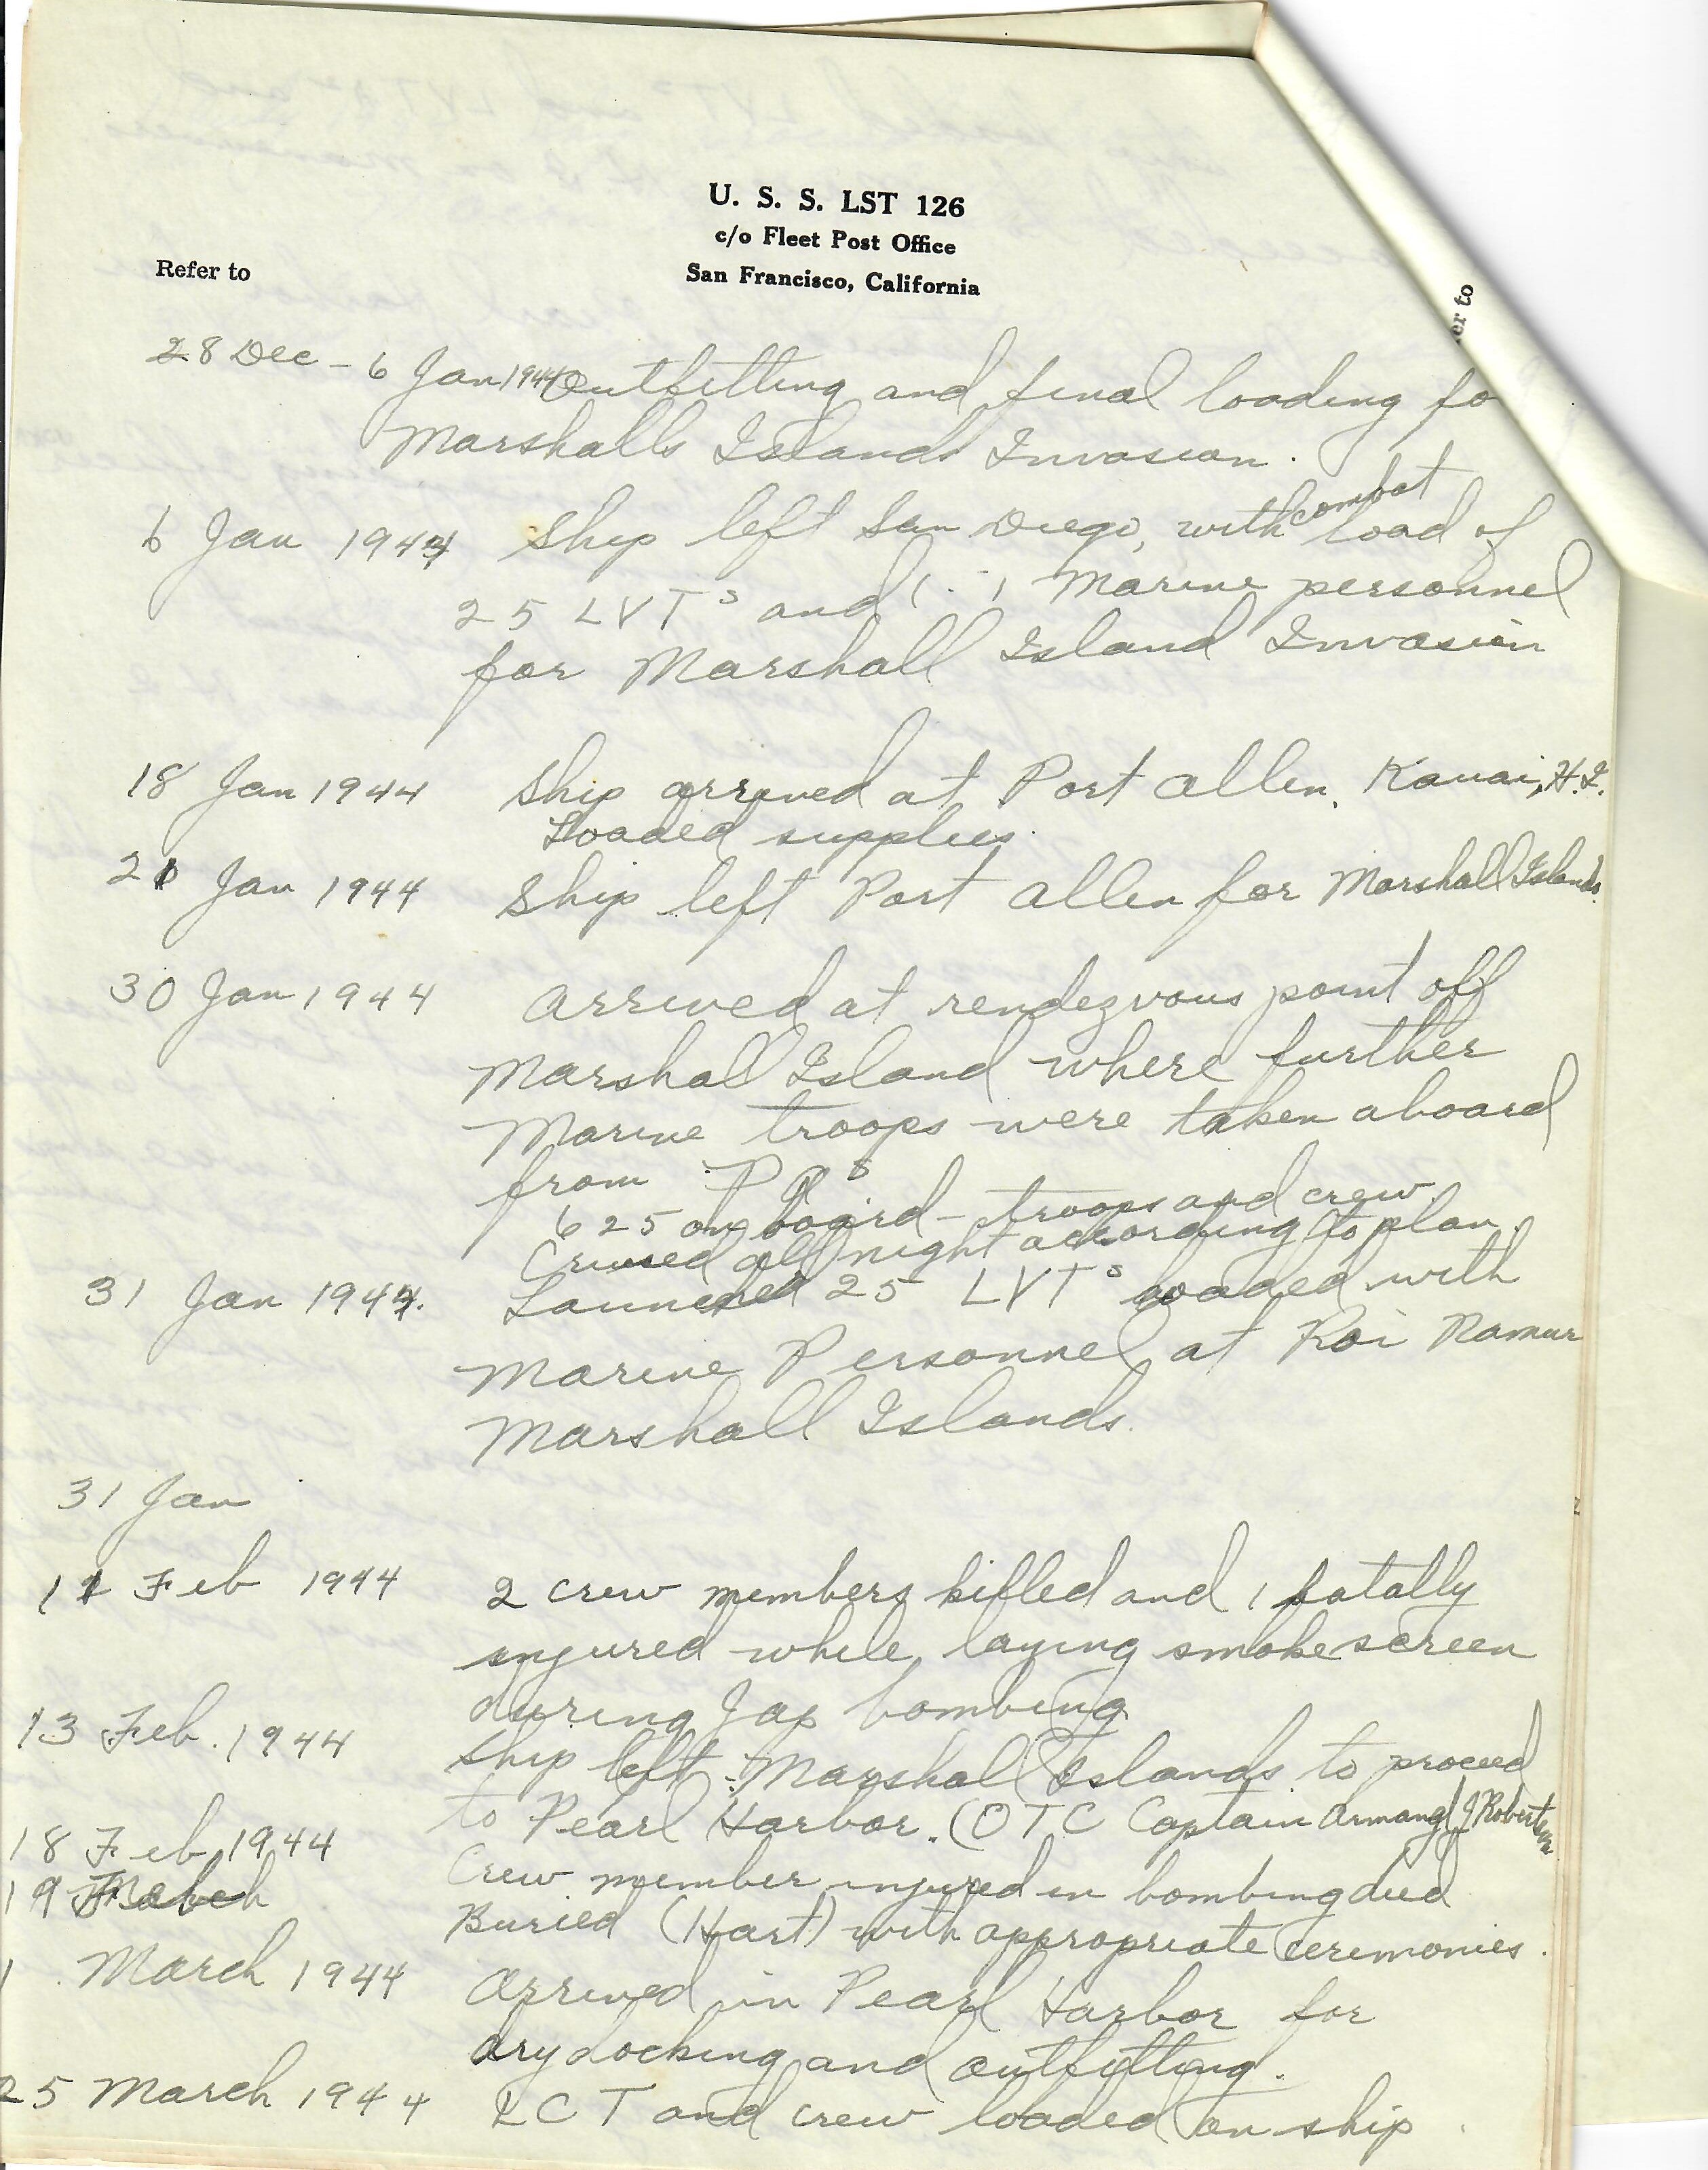 U. S. S. LST 126
c/o Fleet Post Office
San Francisco, California
Refer to
er to
28 Dec - 6 Jan 1944 Outfitting and final loading fo
Marshalls Islands Invasion.
6 Jan 1944 Ship left San Diego, with combat load of
25 LVTs and ( . . , Marine personnel
for Marshall Island Invasion
18 Jan 1944 Ship arrived at Port Allen, Kauai, H.I.
Loaded supplies.
21 Jan 1944 Ship left Port Allen for Marshall Islands.
30 Jan 1944 Arrived at rendezvous point off
Marshall Island where further
Marine troops were taken aboard
from
625 on board - troops and crew.
Cruised all night according to plan.
31 Jan 1944. Launched 25 LVTs loaded with
Marine Personnel at Roi Namur
Marshall Islands.
31 Jan
12 Feb 1944 2 crew members killed and 1 fatally
injured while laying smoke screen
during Jap bombing
13 Feb. 1944 Ship left Marshall Islands to proceed
to Pearl Harbor. (OTC Captain Armand J Robertson
18 Feb 1944 Crew member injured in bombing died
19 Buried (Hart) with appropriate ceremonies.
1 March 1944 Arrived in Pearl Harbor for
dry docking and outfitting.
25 March 1944 LCT and crew loaded on ship.